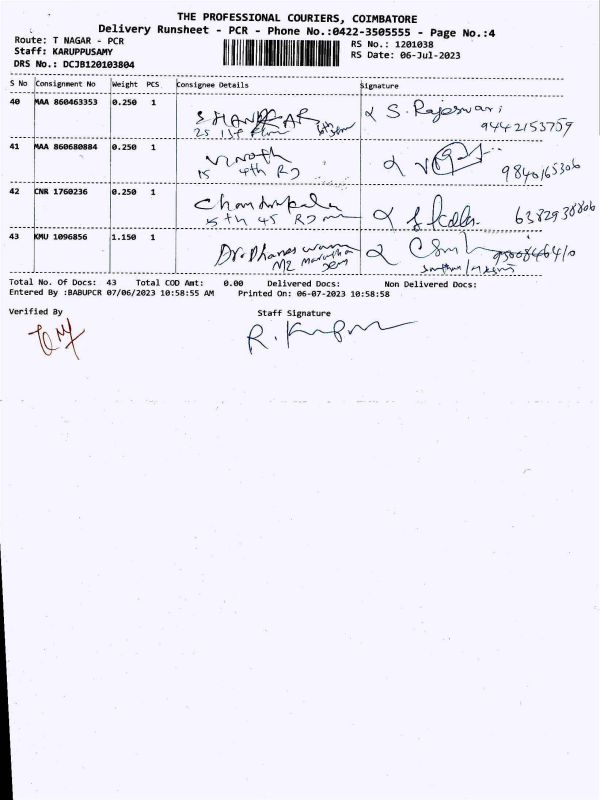 THE PROFESSIONAL COURIERS, COIMBATORE
Delivery Runsheet - PCR - Phone No.:0422-3505555 - Page No.:4
Route: T NAGAR - PCR RS No.: 1201038
Staff: KARUPPUSAMY RS Date: 06-Jul-2023
DRS No.: DCJB120103804
S No Consignment No Weight PCS Consignee Details Signature
40 MAA 860463353 0.250 1 SHANKAR S. Rajeswari
25 1st Floor 9442153759
41 MAA 860680884 0.250 1 Vinoth
15 4th RD 9840165306
42 CNR 1760236 0.250 1 Chandrakala
5th 45 RD 6382938806
43 KMU 1096856 1.150 1
Total No. Of Docs: 43 Total COD Amt: 0.00 Delivered Docs: Non Delivered Docs:
Entered By :BABUPCR 07/06/2023 10:58:55 AM Printed On: 06-07-2023 10:58:58
Verified By Staff Signature